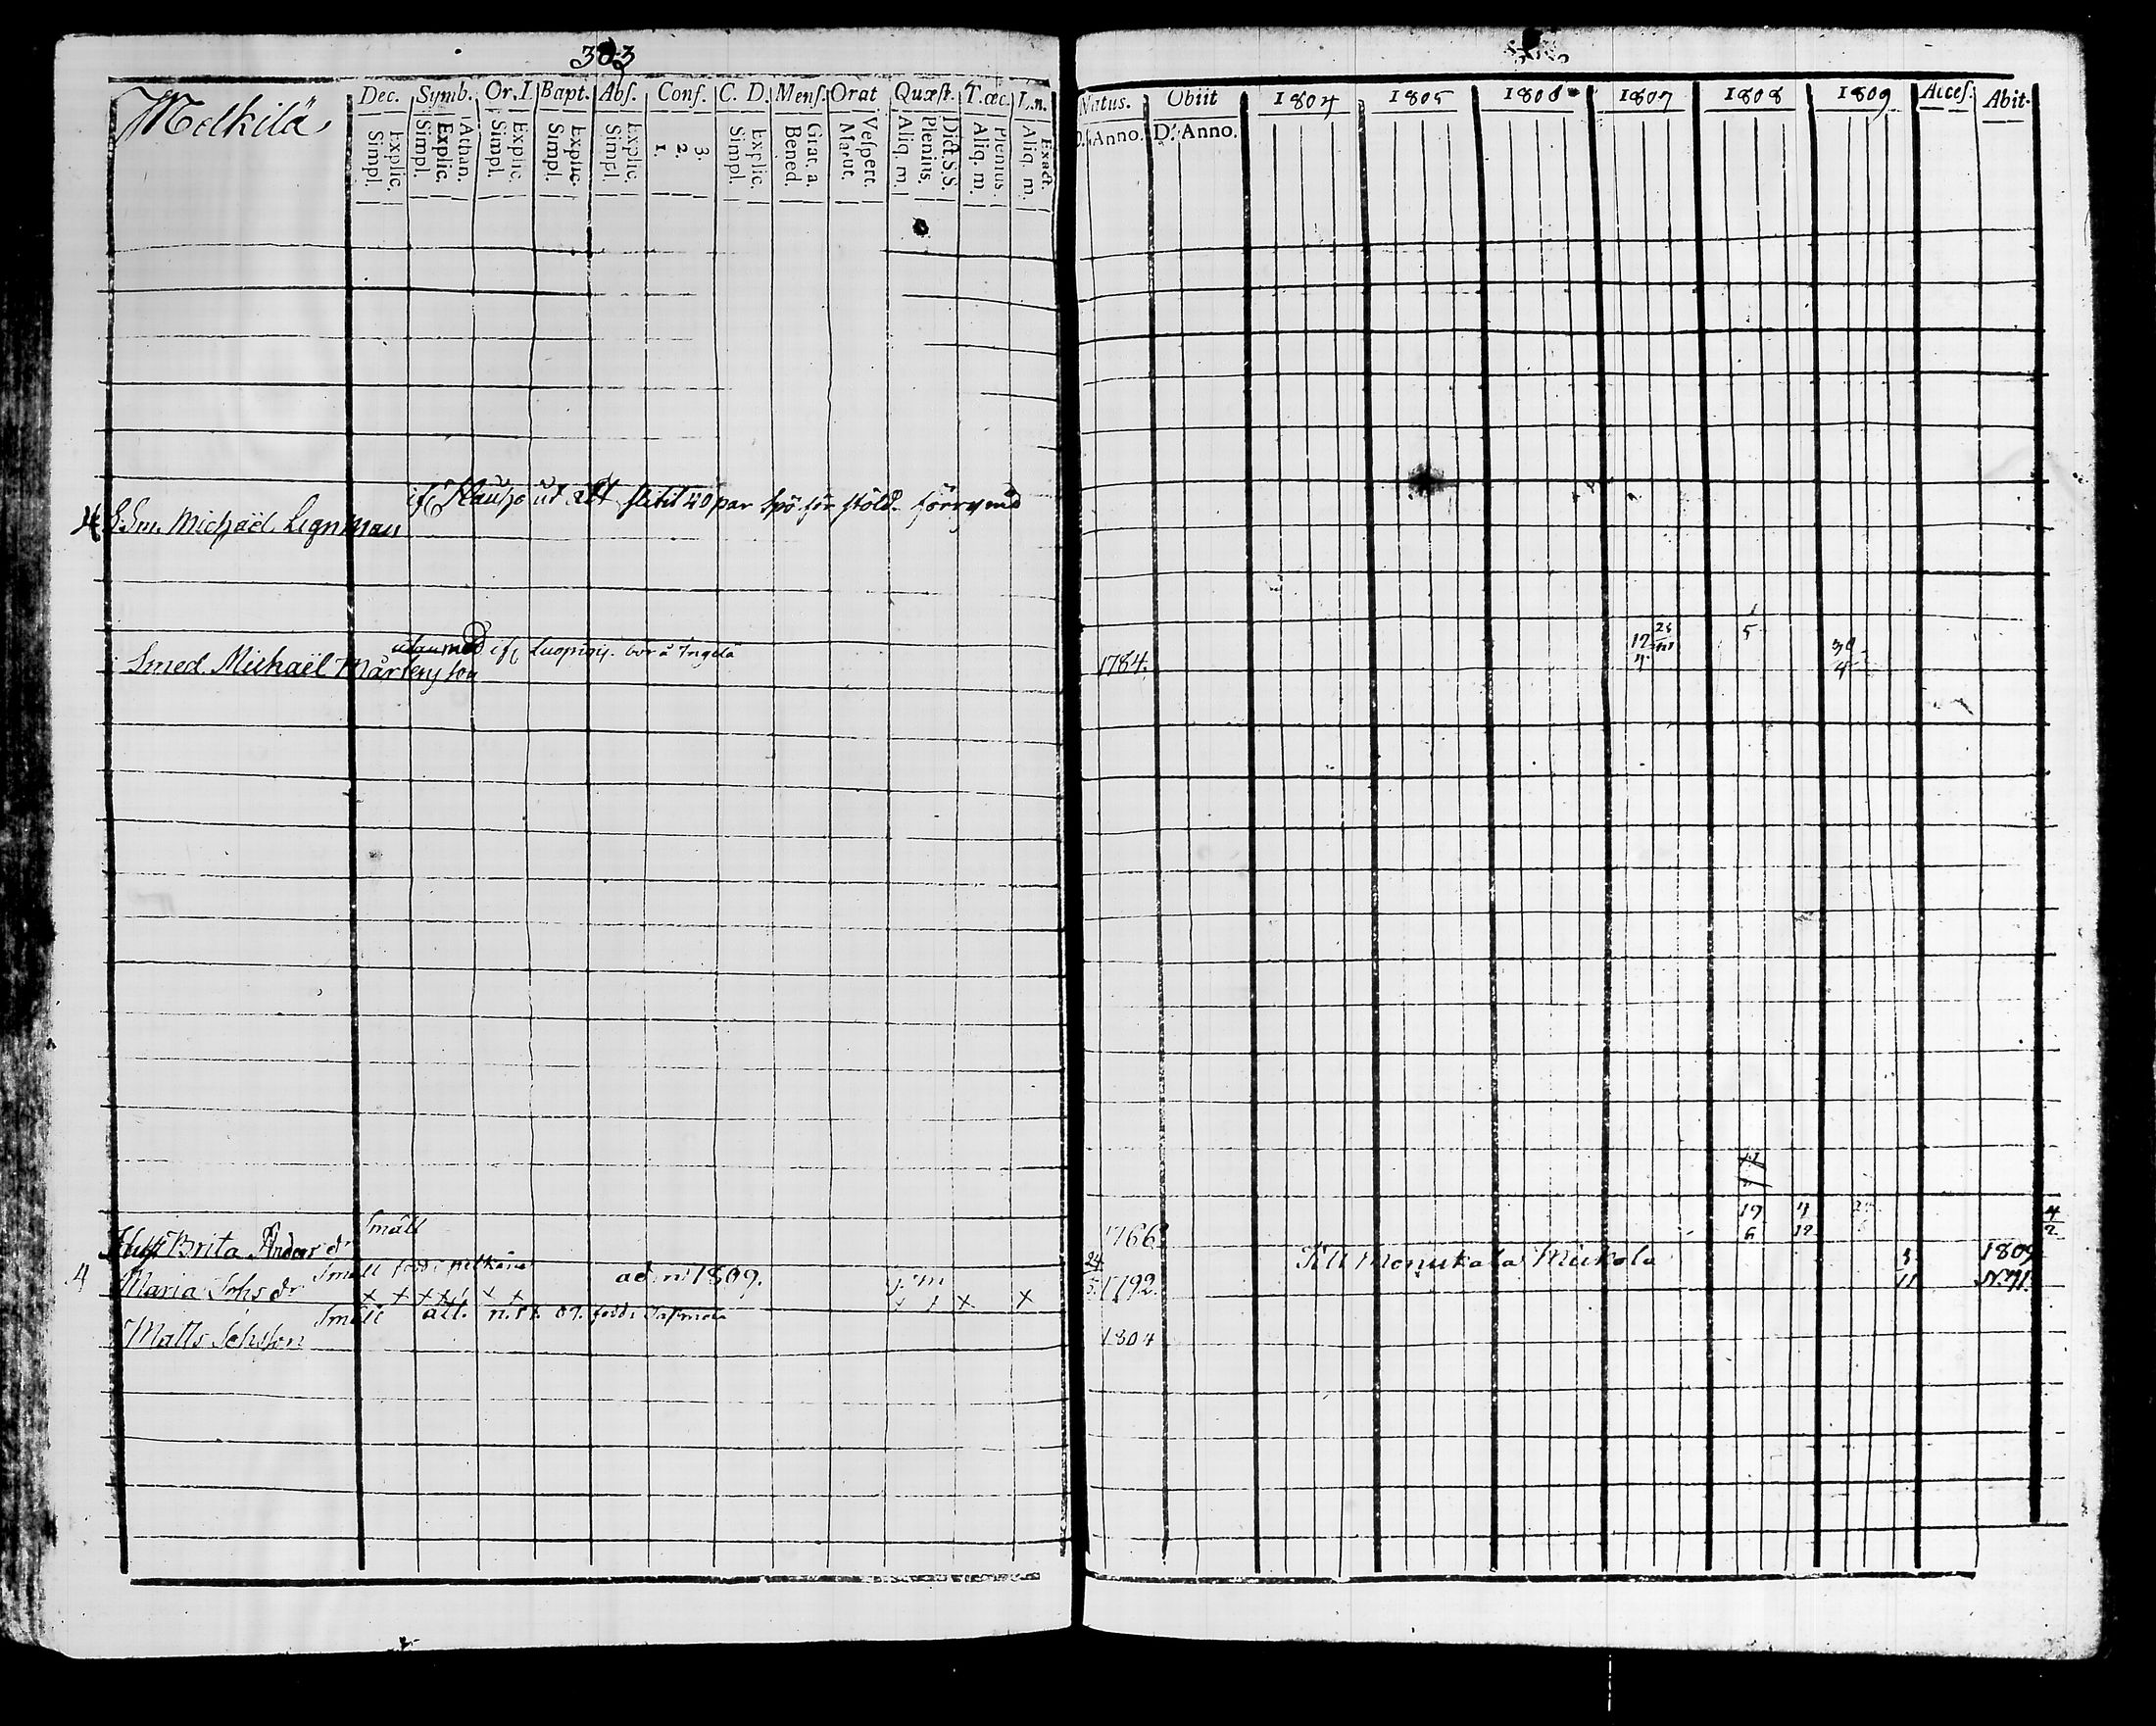 383
Melkilä
Dec. Symb. Or. I Bapt. Abs. Conf. C. D. Mens. Orat Quæst. T. œc. L. n.
Explic. Simpl. Athan. Explic. Simpl. Explic. Simpl. Explic. Simpl. Explic. Simpl. 3. 2. 1. Explic. Simpl. Grat. a. Bened. Vespert. Matut. Dict. S.S. Plenius. Aliq. m. Plenius. Aliq. m. Exact. Aliq. m.
Natus. Obiit 1804 1805 1806 1807 1808 1809 Acces. Abit.
D. Anno. D. Anno.
slitit 40 par spö för stöld
Michaël Lignman
bor å Ingela
Smed. Michaël Mårtensson 1784. 12 4 5 30 4
Småll
Brita Anders dr 1766 17 6 4 12 4 2
Småll född i
4 Maria Johs dr adm 1809. 24 5 1792. Till Monukala Mickola 3 11 1809 N. 71.
x x x x x x x x x
Småll att. n. 71. 09. född i
Matts Johsson 1804